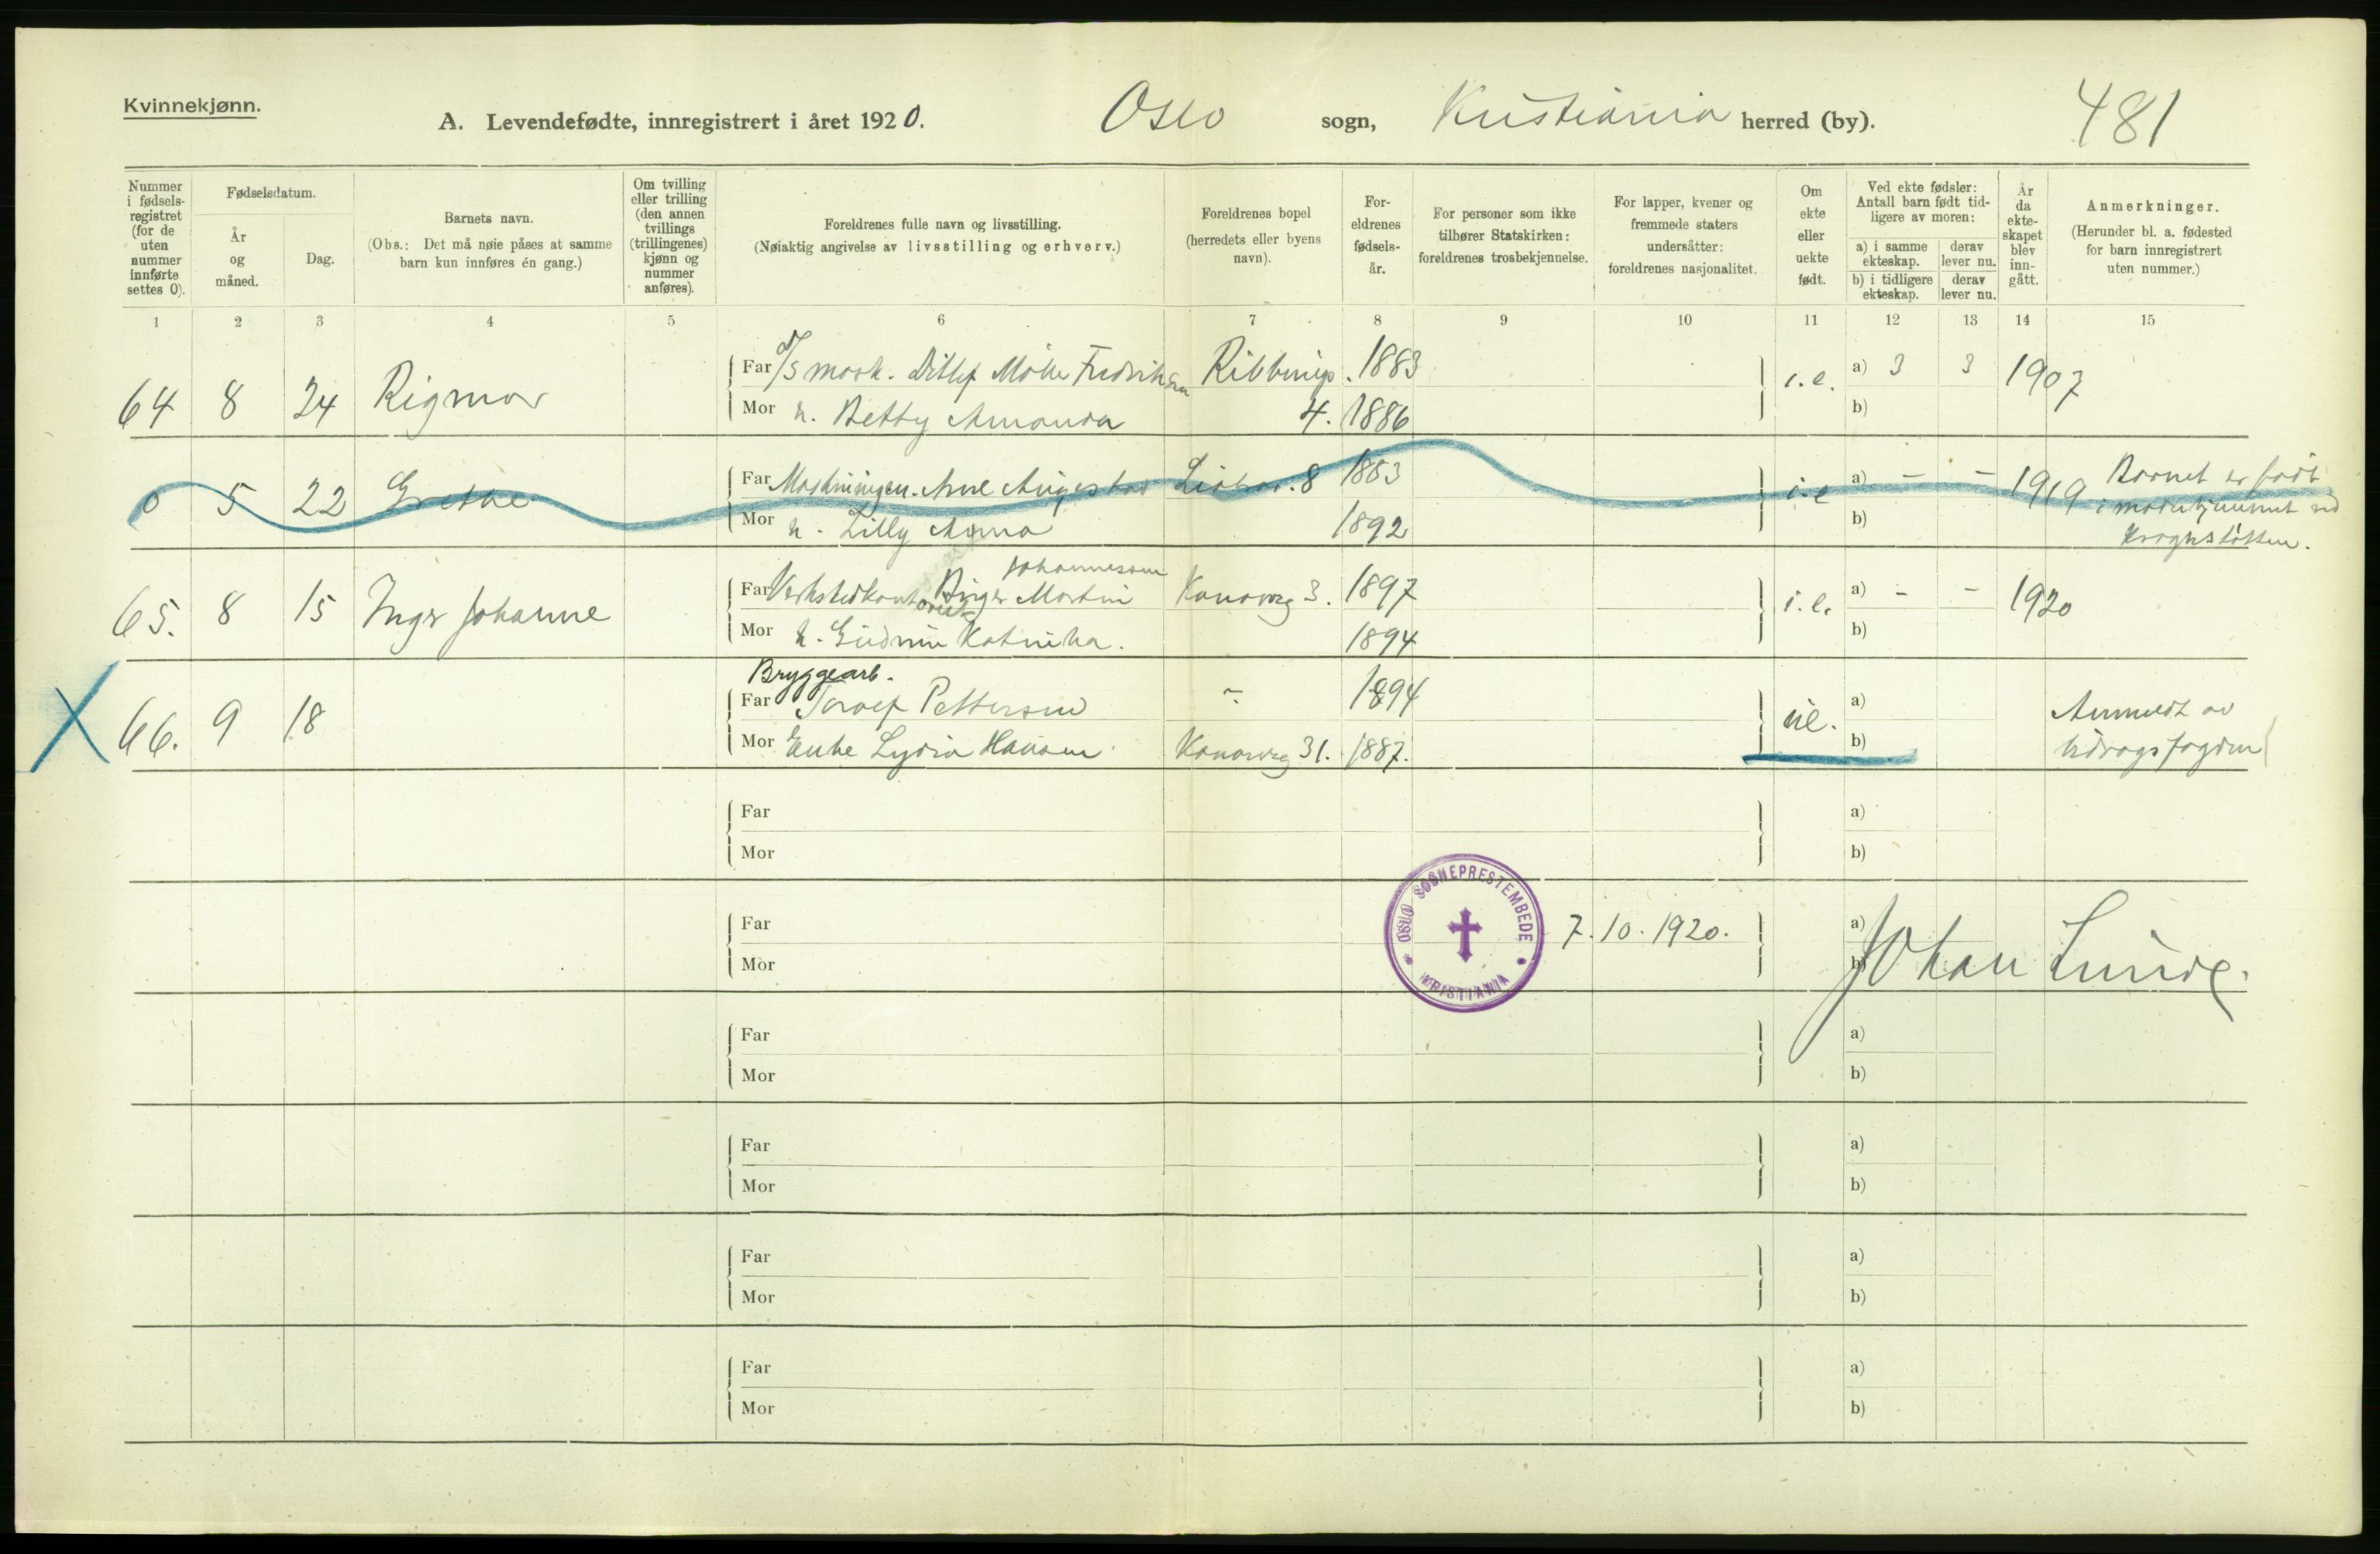 Kvinnekjønn.
A. Levendefødte, innregistrert i året 1920. Oslo sogn, Kristiania herred (by). 481
Nummer i fødsels-registret (for de uten nummer innførte settes 0).
Fødselsdatum.
År og måned.
Dag.
Barnets navn.
(Obs.: Det må nøie påses at samme barn kun innføres én gang.)
Om tvilling eller trilling (den annen tvillings (trillingenes) kjønn og nummer anføres).
Foreldrenes fulle navn og livsstilling.
(Nøiaktig angivelse av livsstilling og erhverv.)
Foreldrenes bopel (herredets eller byens navn).
For-eldrenes fødsels-år.
For personer som ikke tilhører Statskirken: foreldrenes trosbekjennelse.
For lapper, kvener og fremmede staters undersåtter: foreldrenes nasjonalitet.
Om ekte eller uekte født.
Ved ekte fødsler: Antall barn født tid-ligere av moren:
a) i samme ekteskap.
derav lever nu.
b) i tidligere ekteskap.
derav lever nu.
År da ekte-skapet blev inn-gått.
Anmerkninger.
(Herunder bl. a. fødested for barn innregistrert uten nummer.)
1 2 3 4 5 6 7 8 9 10 11 12 13 14 15
64 8 24 Rigmor
Far mask. Ditlef Møller Fredriksen Ribbergs. 1883 i.e. a) 3 3 1907
Mor h. Betty Amanda 4. 1886 b)
0 5 22 Grethe
Far Maskiningen. Arne Augestad 8 1883 i.e a) – – 1919 Barnet er født
Mor h. Lilly Anna 1892 b) i mødrehjemmet ved
Kroghstøtten.
65. 8 15 Inger Johanne
Johannessen
Far Verkstedkontorist Birger Martin Kanaveg 3. 1897 i.e. a) – – 1920
Mor h. Gudrun Katrina. 1894 b)
66. 9 18
Bryggearb.
Far Toralf Pettersen ~ 1894 ue. a) Anmeldt av
Mor Enke Lydia Hansen. Kanaveg 31. 1887. b) bidragsfogden
Far a)
Mor b)
Far 7.10.1920. a)
Mor b) Johan Lunde.
OSLO SOGNEPRESTEMBEDE
KRISTIANIA
Far a)
Mor b)
Far a)
Mor b)
Far a)
Mor b)
Far a)
Mor b)